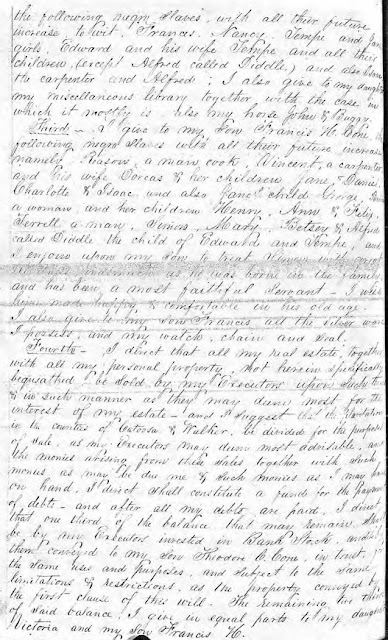 the following negro slaves, with all their future
increase to wit, Frances, Nancy, Tempe and Jane
girls, Edward and his wife Tempe and all their
children (except Alfred called Diddle) and also
the carpenter and Alfred; I also give to my daughter
my miscellaneous library together with the case in
which it mostly is also my horse John & Buggy.
Third - I give to my Son Francis H. Cone
following negro slaves with all their future increase
namely, a man cook, Vincent, a carpenter
and his wife Dorcas & her children Jane, Daniel
Charlotte & Isaac and also Jane's child George,
a woman and her children Henry, Ann &
Ferrell a man, Simon, Mary, Betsey & Alfred
called Diddle the child of Edward and Tempe, and
I enjoin upon my Son to treat Simon with
indulgence as he was borne in the family
and has been a most faithful Servant - I wish
made happy & comfortable in his old age.
I also give to my Son Francis, all the silver
I possess, and my watch, chain and Seal.
Fourth - I direct that all my real estate, together
with all my personal property, not herein specifically
bequeathed be sold by my Executors upon such
& in such manner as they may deem most for the
interest of my estate - and I suggest that the
in the counties of Catoosa & Walker, be divided for the purposes
of sale, as my Executors may deem most advisable, and
the monies arising from these sales together with such
monies, as may be due me & such monies as I may
on hand, I direct shall constitute a fund for the payment
of debts - and after all my debts are paid, I direct
that one third of the balance that may remain, shall
be, by my Executors invested in Bank Stock, and
them conveyed to my Son Theodore C. Cone, in trust, for
the same uses and purposes, and subject to the same
limitations & restrictions, as the property conveyed by
the first clause of this will. The remaining two thirds
of said balance, I give in equal parts to my daughter
Victoria and my Son Francis H.